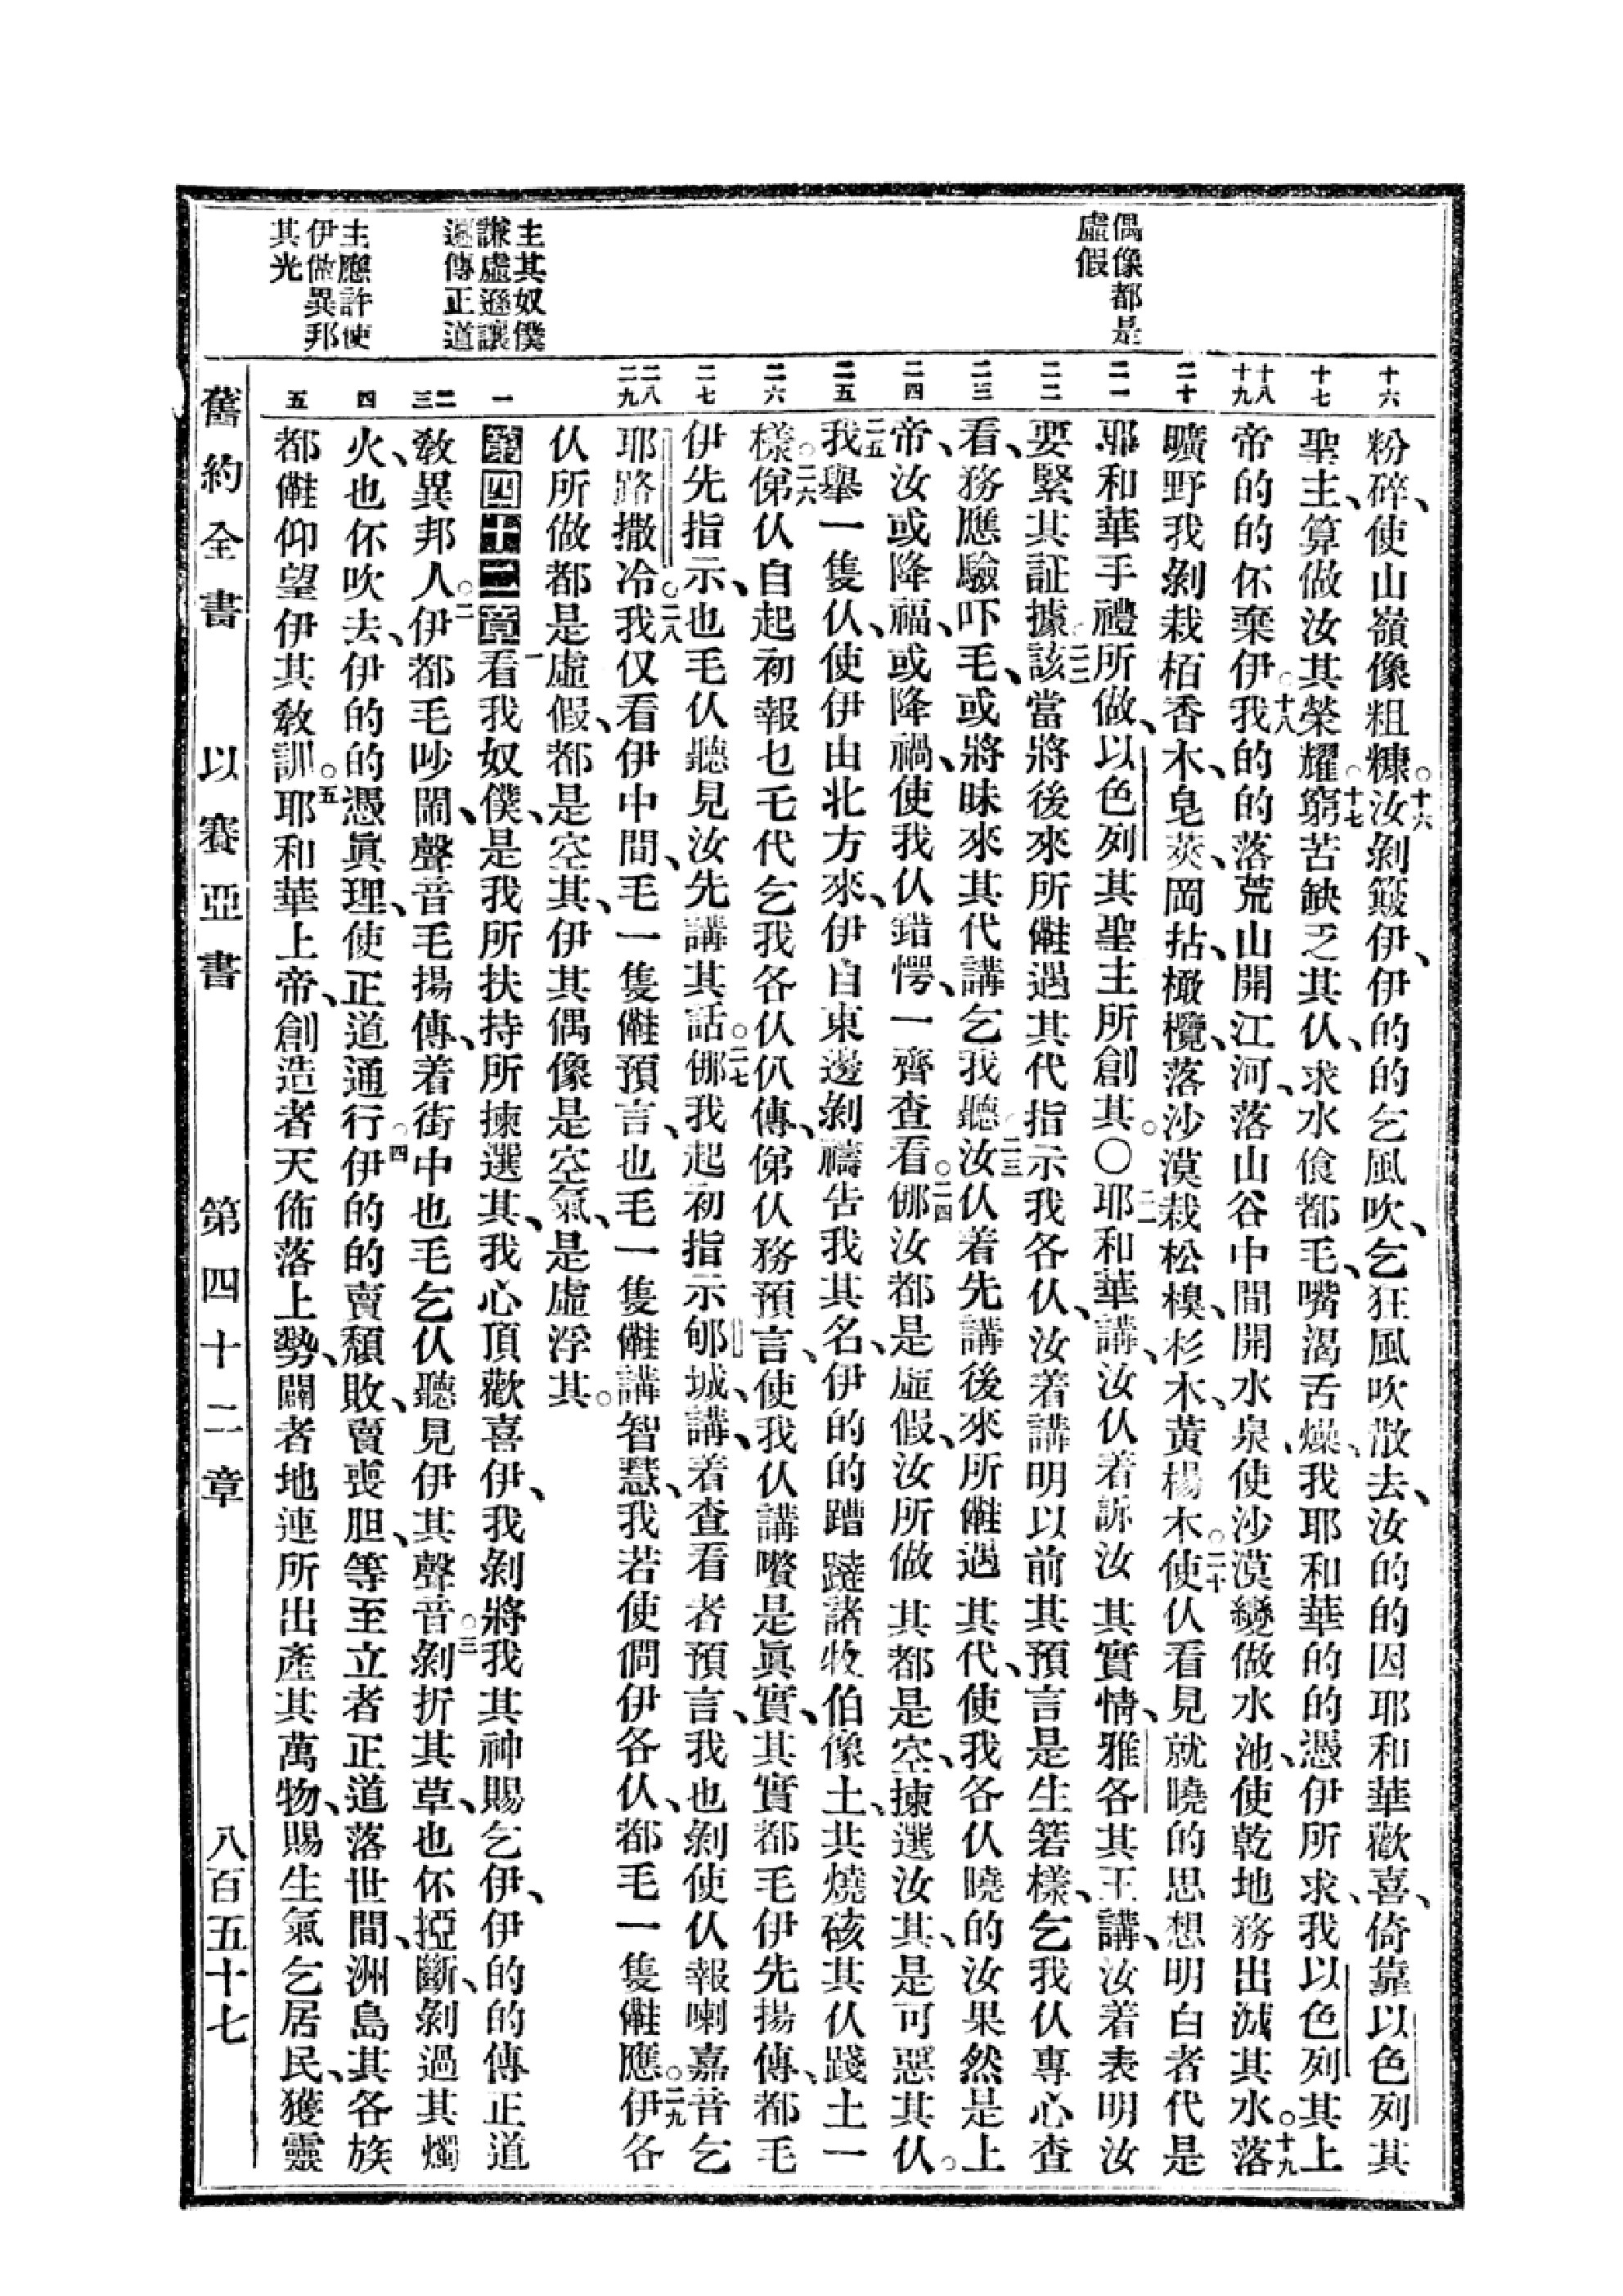 偶像都是
虛假
主其奴僕
謙虛遜讓
遍傳正道
主應許使
伊做異邦
其光
十六
十七
十八
十九
二十
二一
二二
二三
二四
二五
二六
二七
二八
二九
一
二
三
四
五
粉碎、使山嶺像粗糠。十六汝剝簸伊、伊的的乞風吹、乞狂風吹散去、汝的的因耶和華歡喜、倚靠以色列其
聖主、算做汝其榮耀。十七窮苦缺乏其仈、求水飡都毛、嘴渴舌燥、我耶和華的的憑伊所求、我以色列其上
帝的的伓棄伊。十八我的的落荒山開江河、落山谷中間開水泉、使沙漠變做水池、使乾地務出滅其水。十九落
曠野我剝栽栢香木、皂莢、岡拈、橄欖、落沙漠栽松樉、杉木、黃楊木。二十使仈看見就曉的思想明白者代是
耶和華手禮所做、以色列其聖主所創其。〇二一耶和華講、汝仈着訴汝其實情、雅各其王講、汝着表明汝
要緊其証據。二二該當將後來所僆遇其代指示我各仈、汝着講明以前其預言是生箬樣、乞我仈專心查
看、務應驗吓毛、或將昧來其代講乞我聽。二三汝仈着先講後來所僆遇其代、使我各仈曉的汝果然是上
帝、汝或降福、或降禍、使我仈錯愕、一齊查看。二四㑚汝都是虛假、汝所做其都是空、揀選汝其、是可惡其仈。
二五我舉一隻仈、使伊由北方來、伊自東邊剝禱告我其名、伊的的蹧躂諸牧伯像土、共燒硋其仈踐土一
樣。二六俤仈自起初報乜乇代乞我各仈仈傳、俤仈務預言、使我仈講嚽是眞實、其實都毛伊先揚傳、都毛
伊先指示、也毛仈聽見汝先講其話。二七㑚我起初指示郇城、講、着查看者預言、我也剝使仈報喇嘉音乞
耶路撒冷。二八我仅看伊中間、毛一隻僆預言、也毛一隻僆講智慧、我若使僩伊各仈、都毛一隻僆應。二九伊各
仈所做都是虛假、都是空其、伊其偶像是空氣、是虛浮其。
第四十二章一看我奴僕、是我所扶持所揀選其、我心頂歡喜伊、我剝將我其神賜乞伊、伊的的傳正道
敎異邦人。二伊都毛吵鬧、聲音毛揚傳、着街中也毛乞仈聽見伊其聲音。三剝折其草、也伓挜斷、剝過其燭
火、也伓吹去、伊的的憑眞理、使正道通行。四伊的的賣頹敗、賣喪胆、等至立者正道落世間、洲島其各族
都僆仰望伊其敎訓。五耶和華上帝、創造者天佈落上勢、闢者地連所出產其萬物、賜生氣乞居民、獲靈
舊約全書 以賽亞書 第四十二章 八百五十七